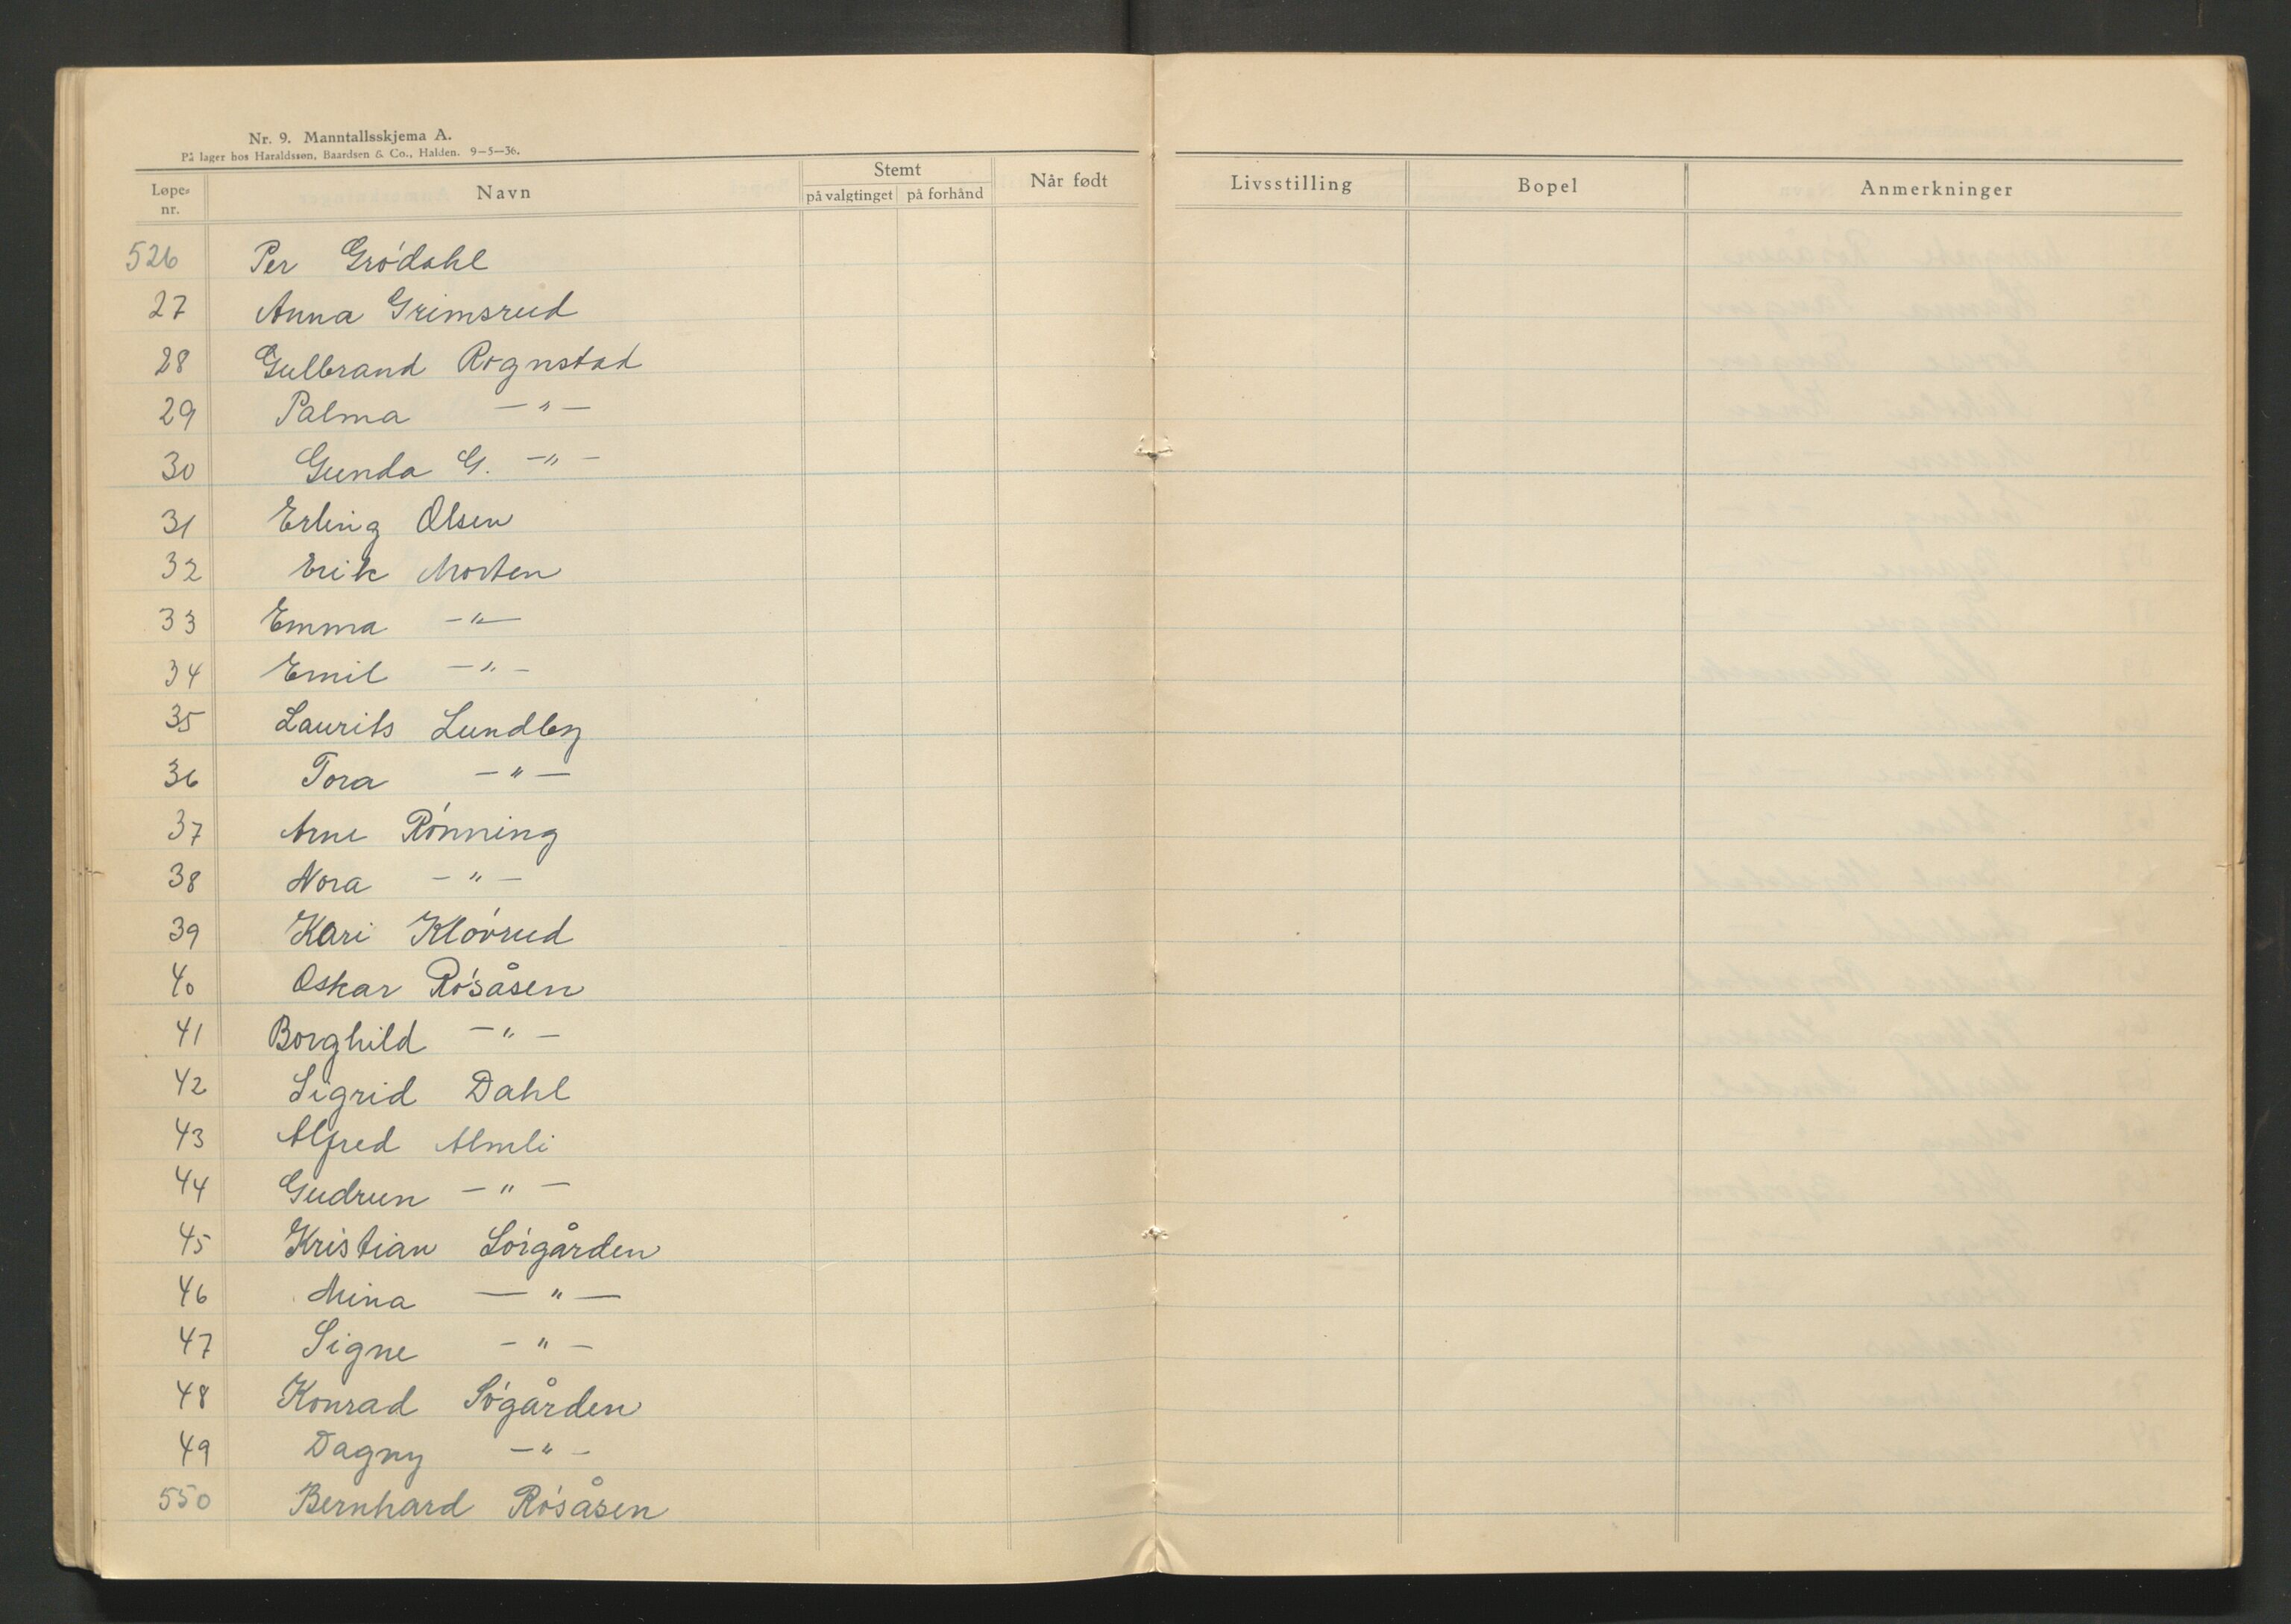 Nr. 9. Manntallsskjema A.
På lager hos Haraldssen, Baardsen & Co., Halden. 9-5-36.
Løpe-nr. Navn Stemt på valgtinget på forhånd Når født Livsstilling Bopel Anmerkninger
526 Per Grødahl
27 Anna Grimsrud
28 Gulbrand Rognstad
29 Palma — " —
30 Gunda G. — " —
31 Erling Olsen
32 Erik Morten
33 Emma — " —
34 Emil — " —
35 Laurits Lundby
36 Tora — " —
37 Arne Rønning
38 Nora — " —
39 Kari Kløvrud
40 Oskar Røsåsen
41 Borghild — " —
42 Sigrid Dahl
43 Alfred Almli
44 Gudrun — " —
45 Kristian Søigården
46 Mina — " —
47 Signe — " —
48 Konrad Søgården
49 Dagny — " —
550 Bernhard Røsåsen